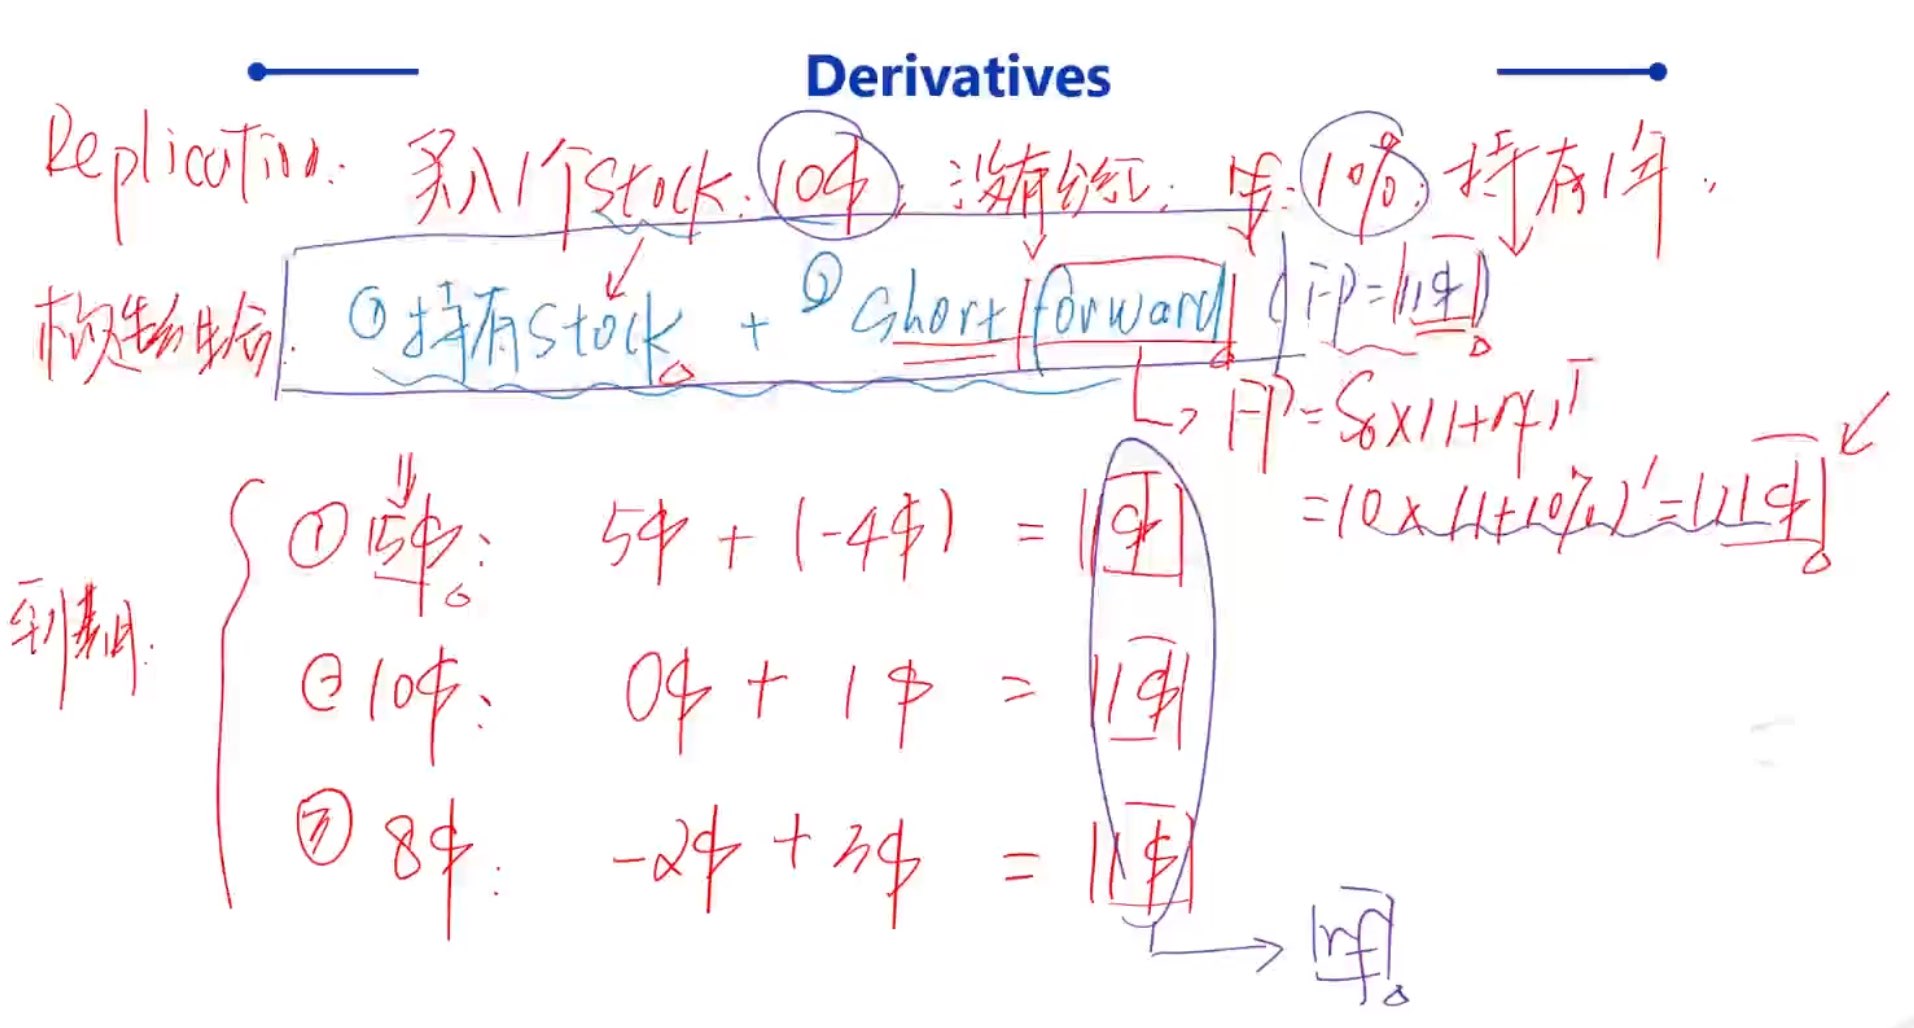 Derivatives
Replication: 买入1个stock: 10$; 没有分红; rf: 10%; 持有1年.
构造组合: ①持有stock + ②short forward (FP=11$)
FP=S₀×(1+rf)ᵀ
=10×(1+10%)¹=11$
到期:
①15$: 5$ + (-4$) = 1$
②10$: 0$ + 1$ = 1$
③8$: -2$ + 3$ = 1$
rf